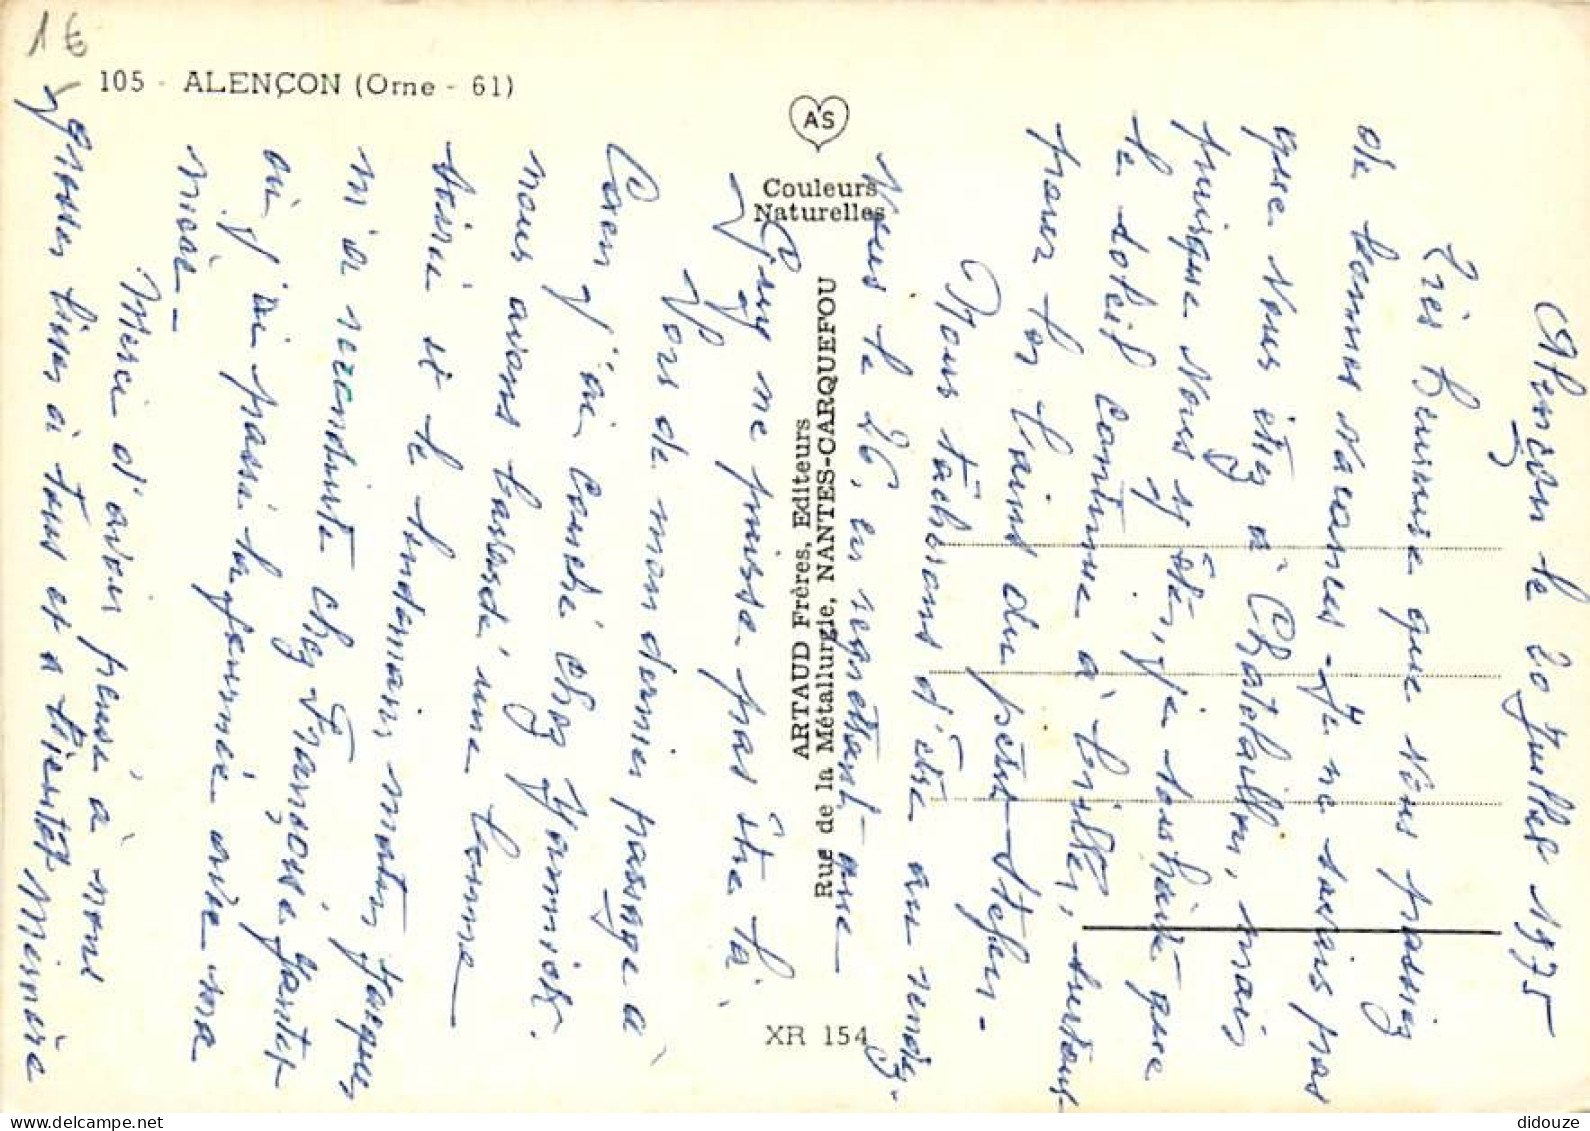 1€
105 - ALENÇON (Orne - 61)
AS
Couleurs
Naturelles
ARTAUD Frères, Editeurs
Rue de la Métallurgie, NANTES-CARQUEFOU
XR 154
Alençon le 20 Juillet 1975
Très heureuse que vous passiez
de bonnes vacances - Je ne savais pas
que vous étiez à Chatelaillon, mais
puisque vous y êtes, je souhaite que
le soleil continue à briller, surtout
pour les bains du petit
Nous tâcherons d'être au rendez-
vous le 26, en regrettant que
Guy ne puisse pas être là.
Lors de mon dernier passage à
Caen j'ai couché chez Yannick.
nous avons bavardé une bonne
soirée et le lendemain matin Jacques
m'a reconduite chez Françoise Gautier
où j'ai passé la journée avec ma
nièce -
Merci d'avoir pensé à nous
grosses bises à tous et à bientôt Mémère
didouze